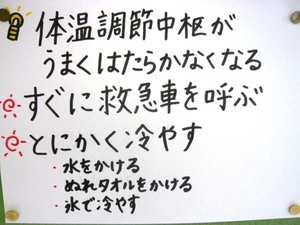 体温調節中枢が
うまくはたらかなくなる
すぐに救急車を呼ぶ
とにかく冷やす
・水をかける
・ぬれタオルをかける
・氷で冷やす